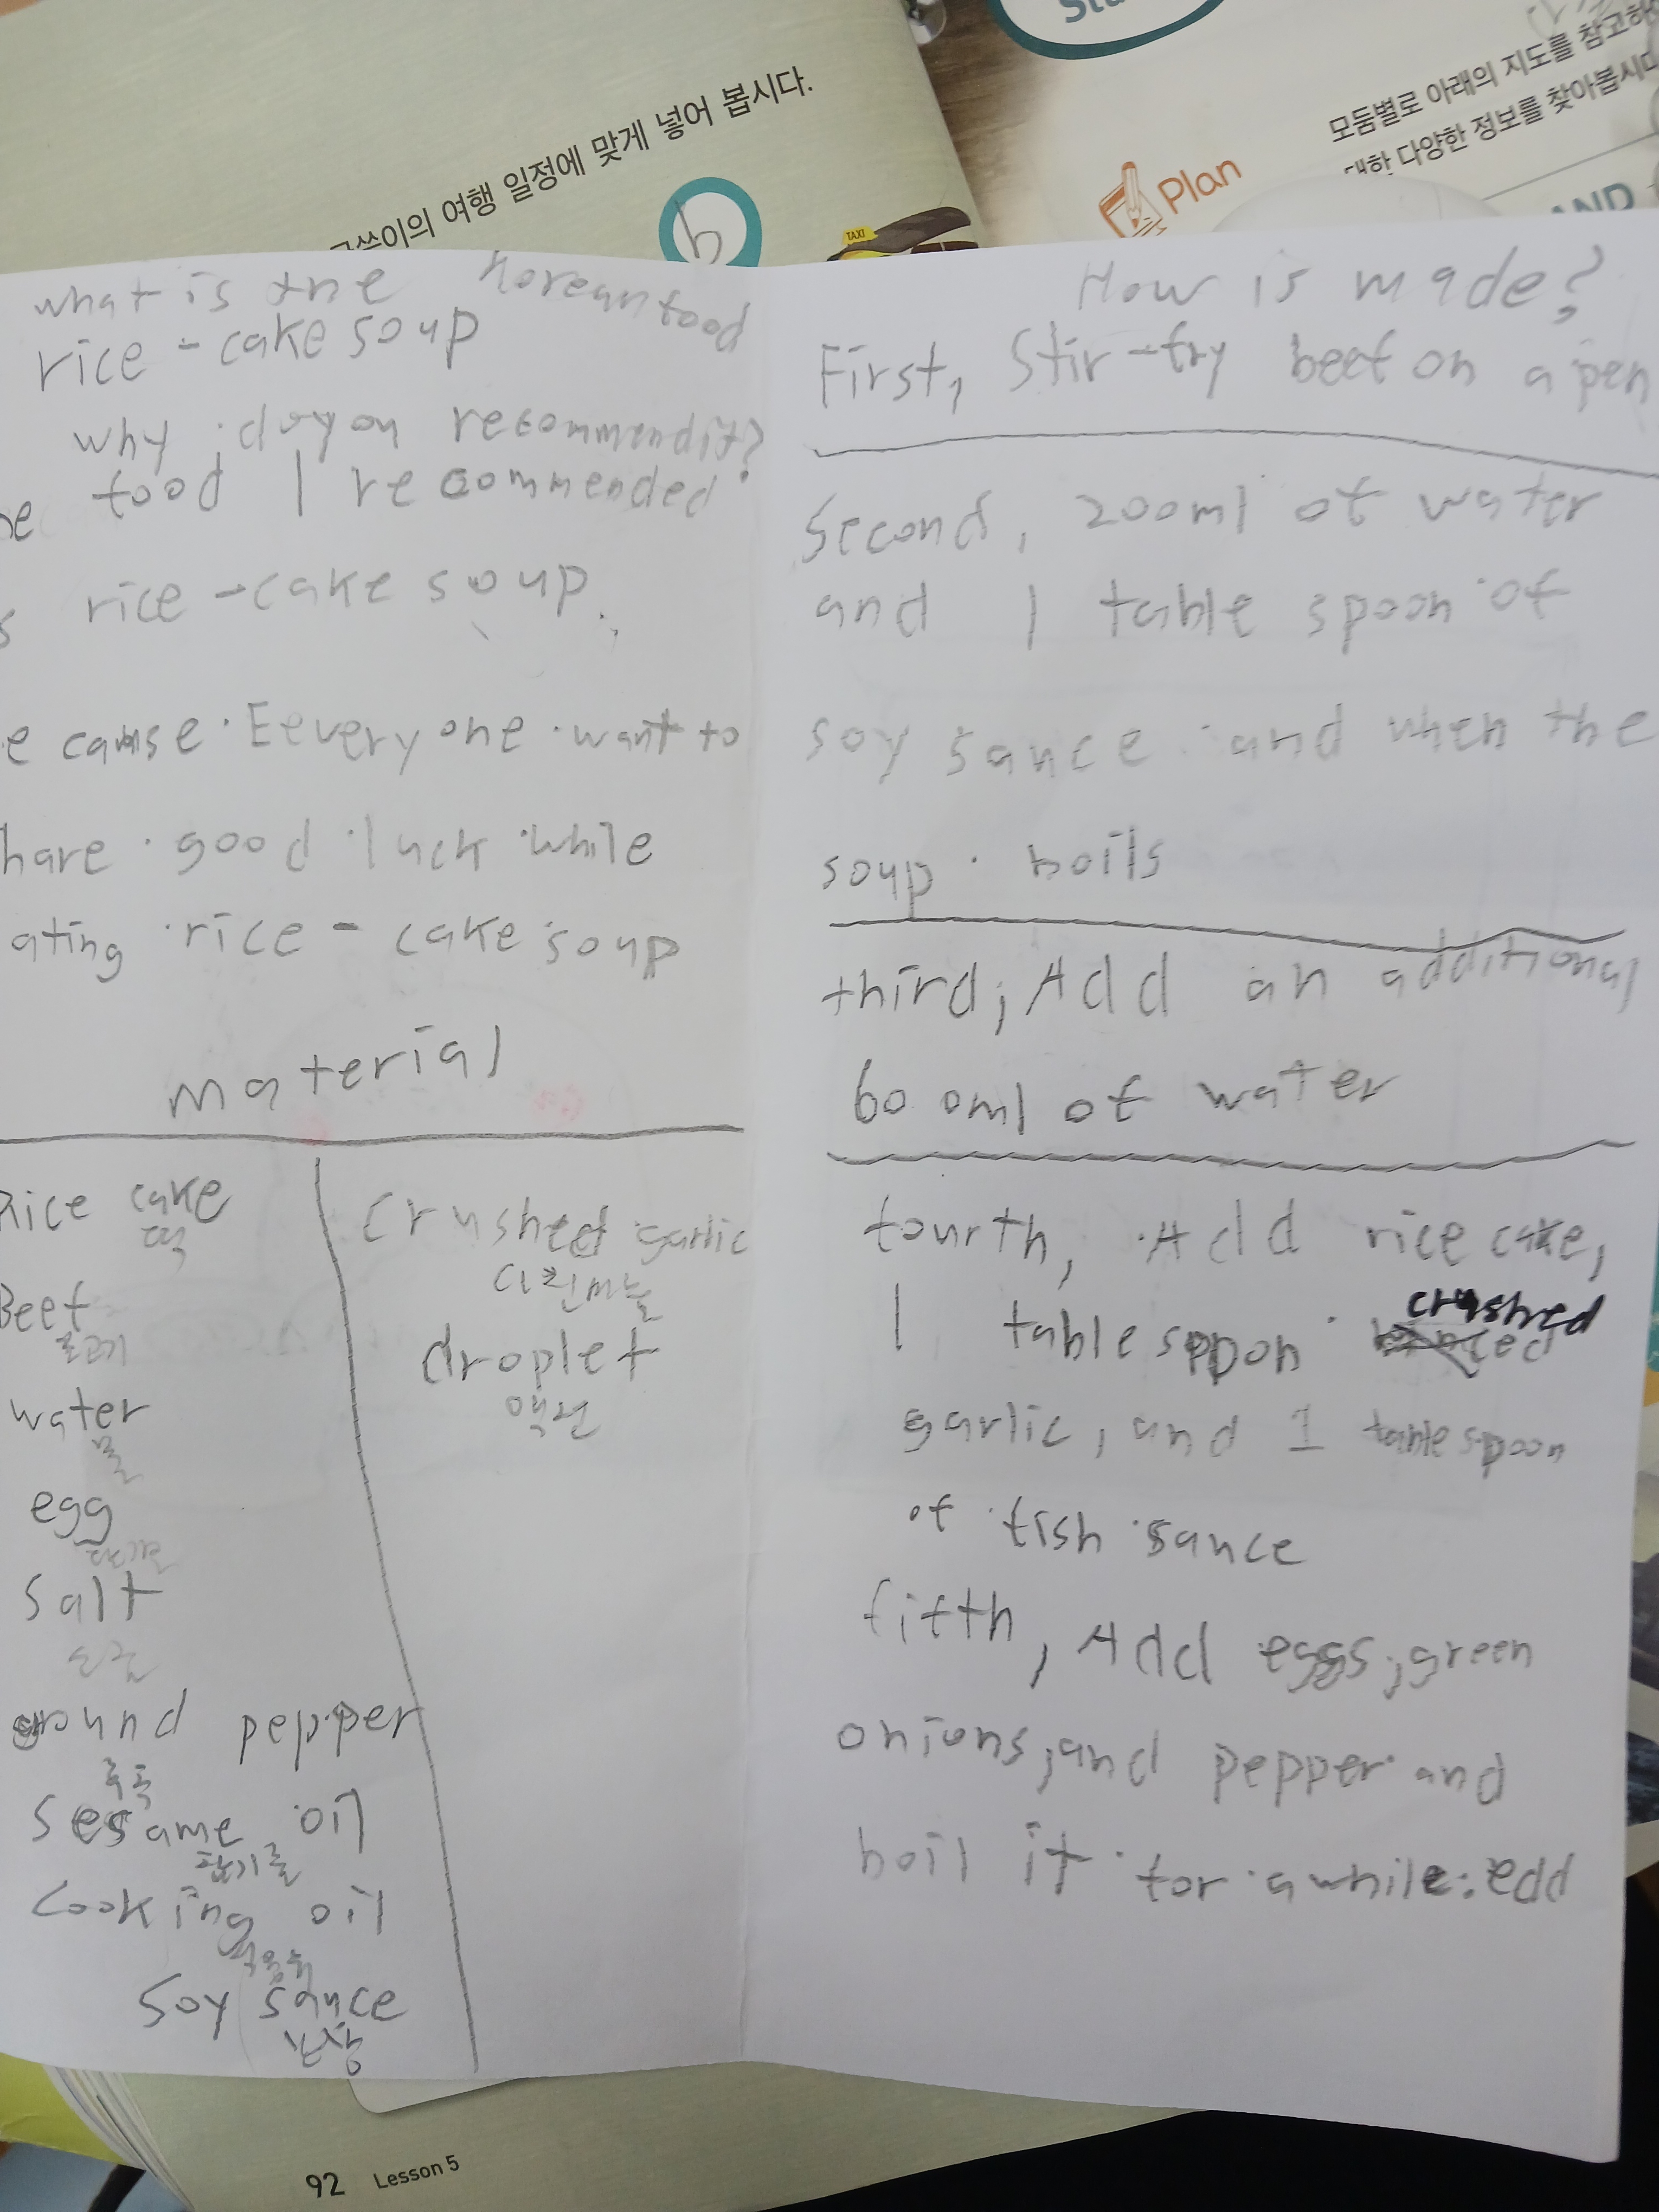 여행 일정에 맞게 넣어 봅시다.
b
TAXI
모둠별로 아래의 지도를 참고하
대한 다양한 정보를 찾아봅시다
Plan
AND
what is the Korean food
rice-cake soup
why do you recommend it?
food I recommended
rice-cake soup.
e cause Eeveryone want to
hare good luck while
ating rice-cake soup
material
Rice cake
떡
Beef
물고기
water
물
egg
salt
소금
ground pepper
후추
sesame oil
참기름
cooking oil
식용유
soy sauce
간장
crushed garlic
다진마늘
droplet
액젓
How is made?
First, Stir-fry beef on a pen
Second, 200ml of water
and 1 table spoon of
soy sauce and when the
soup boils
third, Add an additional
600ml of water
fourth, Add rice cake,
1 table sppon crushed
garlic, and 1 table spoon
of fish sauce
fifth, Add eggs, green
onions, and pepper and
boil it for a while. edd
92 Lesson 5